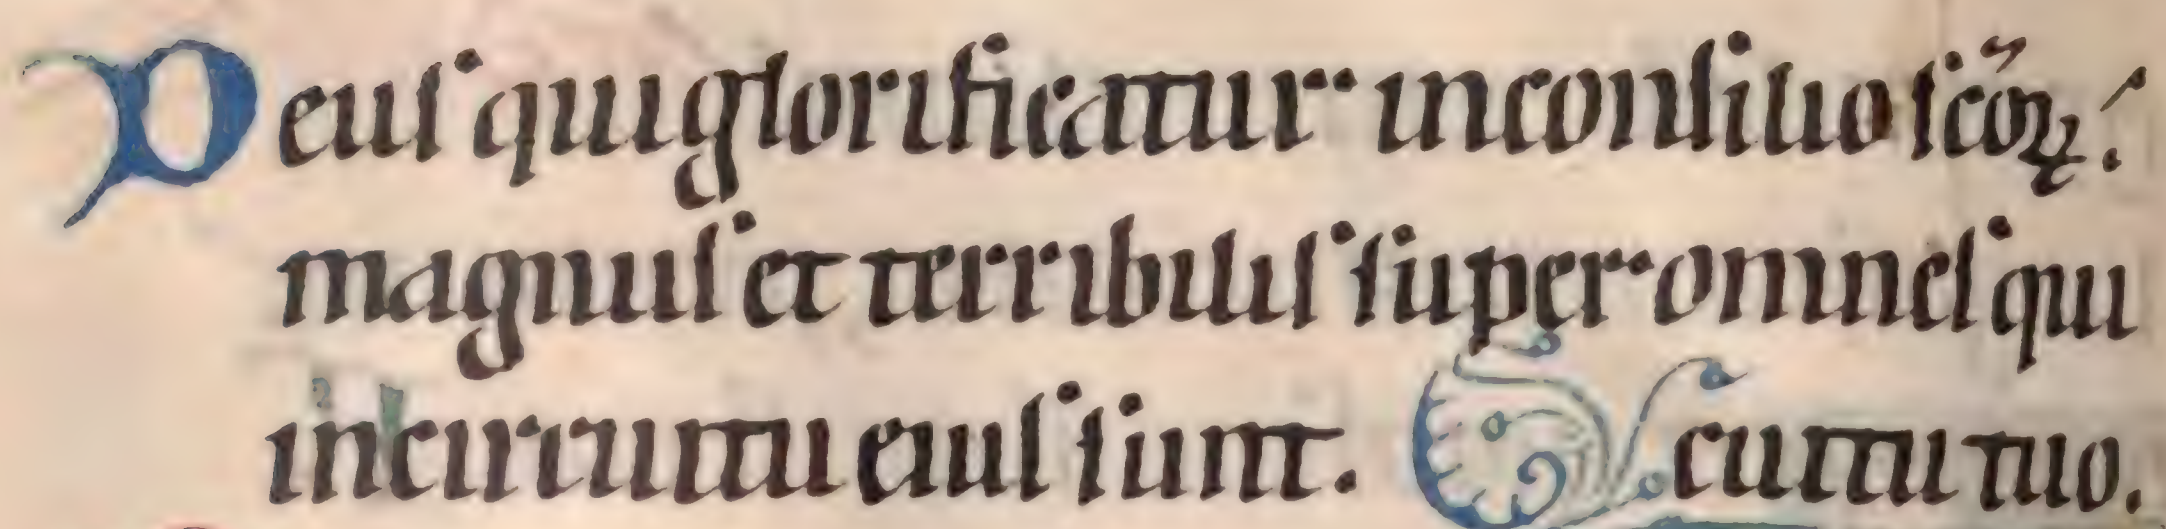 Deuſ qui glorificatur inconſilio ſcōꝝ:
magnuſ et terribiliſ ſuper omneſ qui
incircuitu eiuſ ſunt. cuitu tuo.